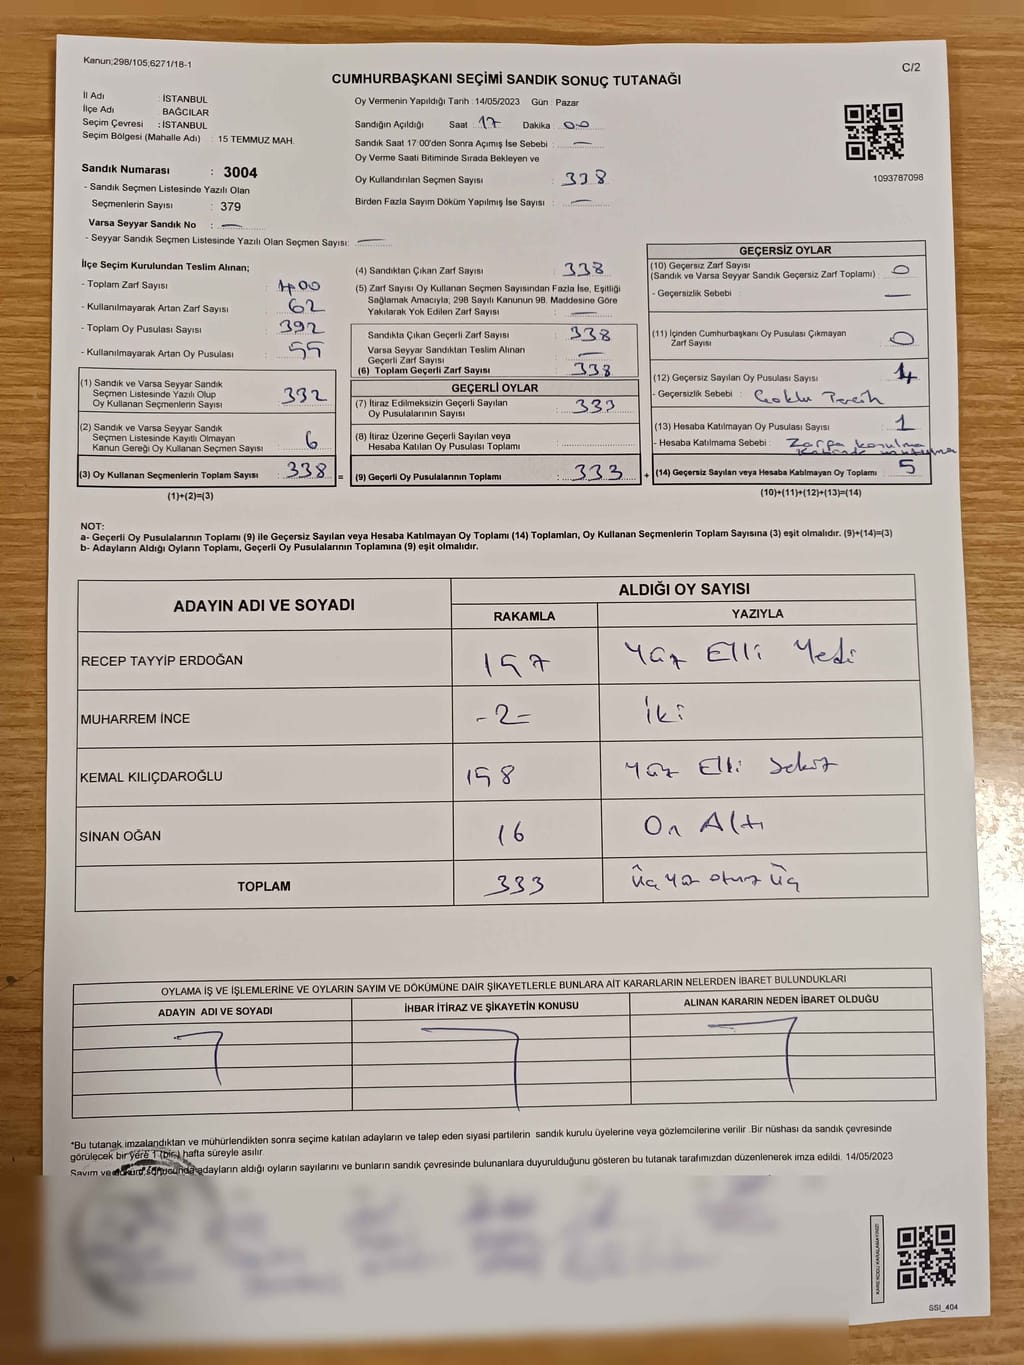 Kanun;298/105;6271/18-1
C/2
CUMHURBAŞKANI SEÇİMİ SANDIK SONUÇ TUTANAĞI
İl Adı : İSTANBUL
İlçe Adı BAĞCILAR
Seçim Çevresi : İSTANBUL
Seçim Bölgesi (Mahalle Adı) : 15 TEMMUZ MAH.
Sandık Numarası : 3004
- Sandık Seçmen Listesinde Yazılı Olan
Seçmenlerin Sayısı : 379
Varsa Seyyar Sandık No : —
- Seyyar Sandık Seçmen Listesinde Yazılı Olan Seçmen Sayısı: —
Oy Vermenin Yapıldığı Tarih : 14/05/2023 Gün : Pazar
Sandığın Açıldığı Saat : 17 Dakika : 00
Sandık Saat 17:00'den Sonra Açımış İse Sebebi : —
Oy Verme Saati Bitiminde Sırada Bekleyen ve
Oy Kullandırılan Seçmen Sayısı : 338
Birden Fazla Sayım Döküm Yapılmış İse Sayısı : —
1093787098
İlçe Seçim Kurulundan Teslim Alınan;
- Toplam Zarf Sayısı : 400
- Kullanılmayarak Artan Zarf Sayısı : 62
- Toplam Oy Pusulası Sayısı : 392
- Kullanılmayarak Artan Oy Pusulası : 55
(1) Sandık ve Varsa Seyyar Sandık
Seçmen Listesinde Yazılı Olup
Oy Kullanan Seçmenlerin Sayısı : 332
(2) Sandık ve Varsa Seyyar Sandık
Seçmen Listesinde Kayıtlı Olmayan
Kanun Gereği Oy Kullanan Seçmen Sayısı : 6
(3) Oy Kullanan Seçmenlerin Toplam Sayısı : 338 =
(1)+(2)=(3)
(4) Sandıktan Çıkan Zarf Sayısı : 338
(5) Zarf Sayısı Oy Kullanan Seçmen Sayısından Fazla İse, Eşitliği
Sağlamak Amacıyla, 298 Sayılı Kanunun 98. Maddesine Göre
Yakılarak Yok Edilen Zarf Sayısı : —
Sandıkta Çıkan Geçerli Zarf Sayısı : 338
Varsa Seyyar Sandıktan Teslim Alınan
Geçerli Zarf Sayısı : —
(6) Toplam Geçerli Zarf Sayısı : 338
GEÇERLİ OYLAR
(7) İtiraz Edilmeksizin Geçerli Sayılan
Oy Pusulalarının Sayısı : 333
(8) İtiraz Üzerine Geçerli Sayılan veya
Hesaba Katılan Oy Pusulası Toplamı :
(9) Geçerli Oy Pusulalarının Toplamı : 333 +
GEÇERSİZ OYLAR
(10) Geçersiz Zarf Sayısı
(Sandık ve Varsa Seyyar Sandık Geçersiz Zarf Toplamı) : 0
- Geçersizlik Sebebi : —
(11) İçinden Cumhurbaşkanı Oy Pusulası Çıkmayan
Zarf Sayısı : 0
(12) Geçersiz Sayılan Oy Pusulası Sayısı : 4
- Geçersizlik Sebebi : Çoklu Tercih
(13) Hesaba Katılmayan Oy Pusulası Sayısı : 1
- Hesaba Katılmama Sebebi : Zarfa konulma
(14) Geçersiz Sayılan veya Hesaba Katılmayan Oy Toplamı : 5
(10)+(11)+(12)+(13)=(14)
NOT:
a- Geçerli Oy Pusulalarının Toplamı (9) ile Geçersiz Sayılan veya Hesaba Katılmayan Oy Toplamı (14) Toplamları, Oy Kullanan Seçmenlerin Toplam Sayısına (3) eşit olmalıdır. (9)+(14)=(3)
b- Adayların Aldığı Oyların Toplamı, Geçerli Oy Pusulalarının Toplamına (9) eşit olmalıdır.
ADAYIN ADI VE SOYADI
ALDIĞI OY SAYISI
RAKAMLA YAZIYLA
RECEP TAYYİP ERDOĞAN 157 Yüz Elli Yedi
MUHARREM İNCE -2- İki
KEMAL KILIÇDAROĞLU 158 Yüz Elli Sekiz
SİNAN OĞAN 16 On Altı
TOPLAM 333 Üç Yüz otuz Üç
OYLAMA İŞ VE İŞLEMLERİNE VE OYLARIN SAYIM VE DÖKÜMÜNE DAİR ŞİKAYETLERLE BUNLARA AİT KARARLARIN NELERDEN İBARET BULUNDUKLARI
ADAYIN ADI VE SOYADI İHBAR İTİRAZ VE ŞİKAYETİN KONUSU ALINAN KARARIN NEDEN İBARET OLDUĞU
*Bu tutanak imzalandıktan ve mühürlendikten sonra seçime katılan adayların ve talep eden siyasi partilerin sandık kurulu üyelerine veya gözlemcilerine verilir .Bir nüshası da sandık çevresinde
görülecek bir yere 1 (bir) hafta süreyle asılır.
Sayım ve döküm sonucunda adayların aldığı oyların sayılarını ve bunların sandık çevresinde bulunanlara duyurulduğunu gösteren bu tutanak tarafımızdan düzenlenerek imza edildi. 14/05/2023
KARE KODU KARALAMAYINIZ!
SSI_404